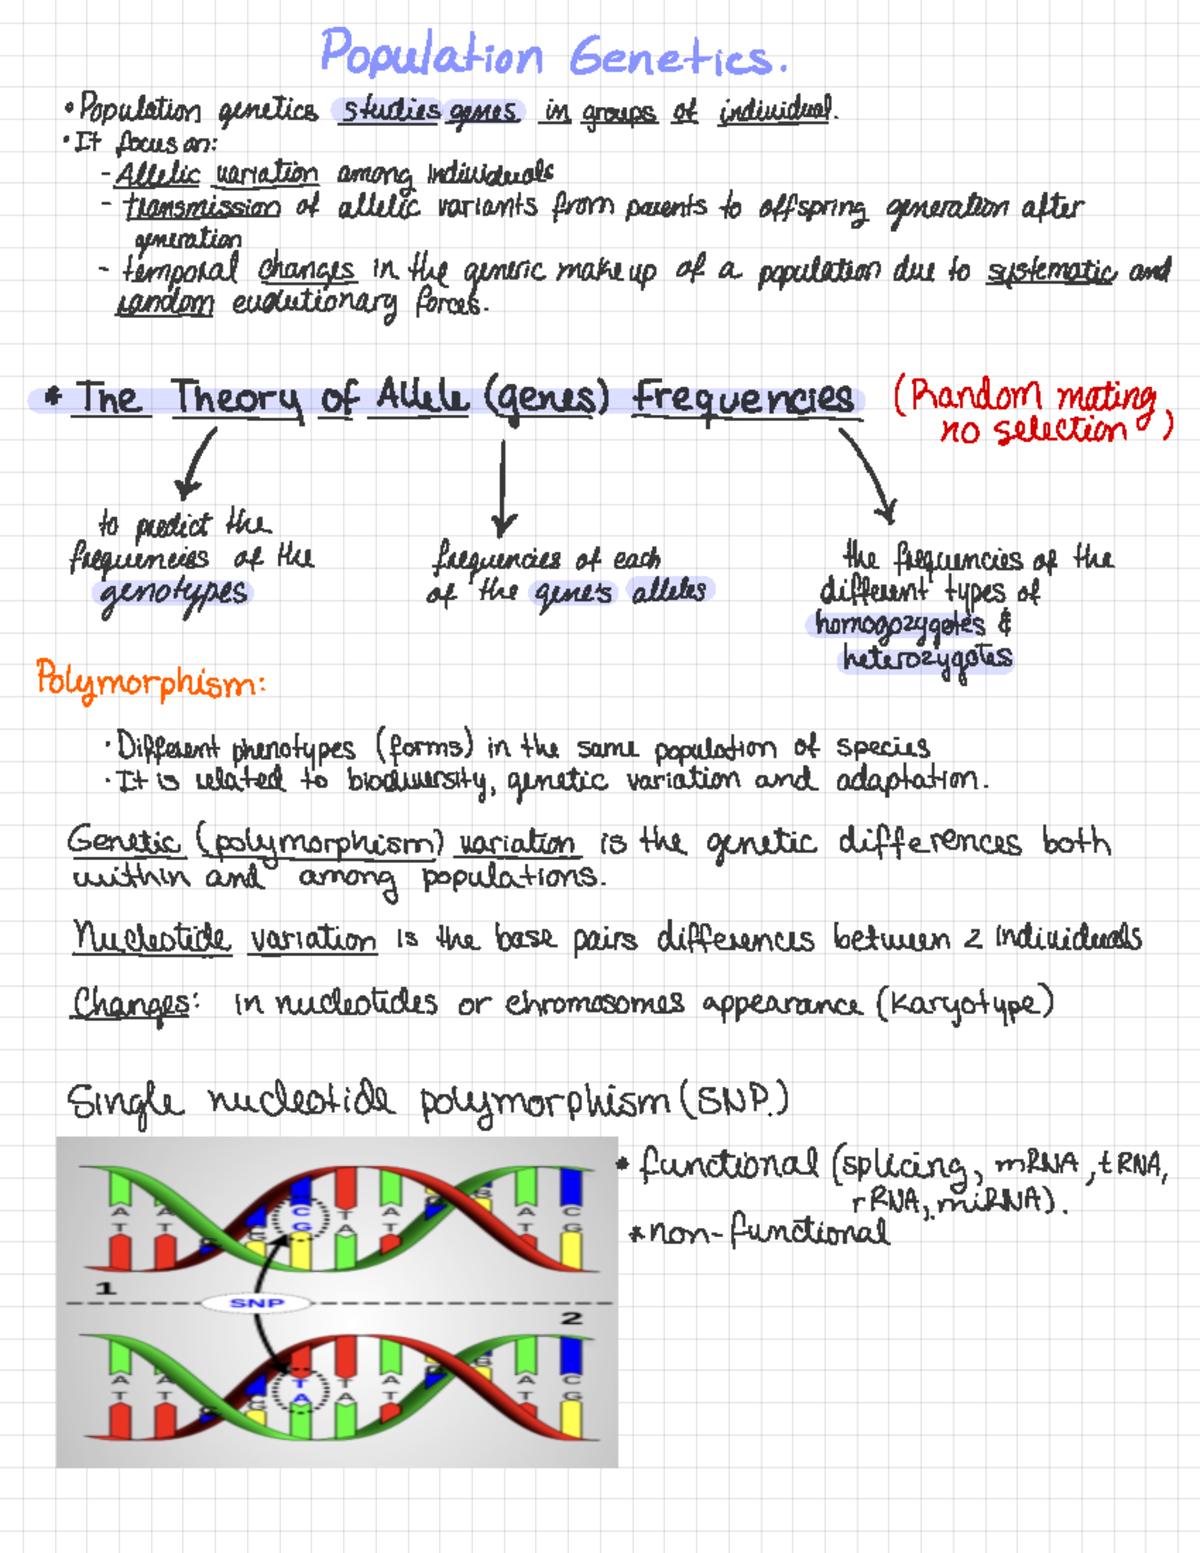 Population Genetics.
• Population genetics studies genes in groups of individual.
• It focus on:
- Allelic variation among individuals
- transmission of allelic variants from parents to offspring generation after
generation
- temporal changes in the generic makeup of a population due to systematic and
random evolutionary forces.
* The Theory of Allele (genes) Frequencies (Random mating,
no selection)
to predict the
frequencies of the
genotypes
frequencies of each
of the gene's alleles
the frequencies of the
different types of
homogozygotes &
heterozygotes
Polymorphism:
· Different phenotypes (forms) in the same population of species
· It is related to biodiversity, genetic variation and adaptation.
Genetic (polymorphism) variation is the genetic differences both
within and among populations.
Nucleotide variation is the base pairs differences between 2 individuals
Changes: in nucleotides or chromosomes appearance (Karyotype)
Single nucleotide polymorphism (SNP.)
* functional (splicing, mRNA, tRNA,
rRNA, miRNA).
* non-functional
C
A A T A A C
T T G A T G
1
SNP
2
A A T T A A C
T T A A T G